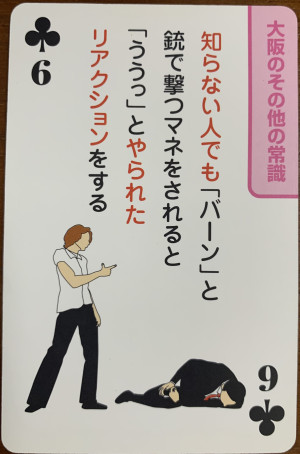 6
大阪のその他の常識
知らない人でも「バーン」と
銃で撃つマネをされると
「ううっ」とやられた
リアクションをする
6